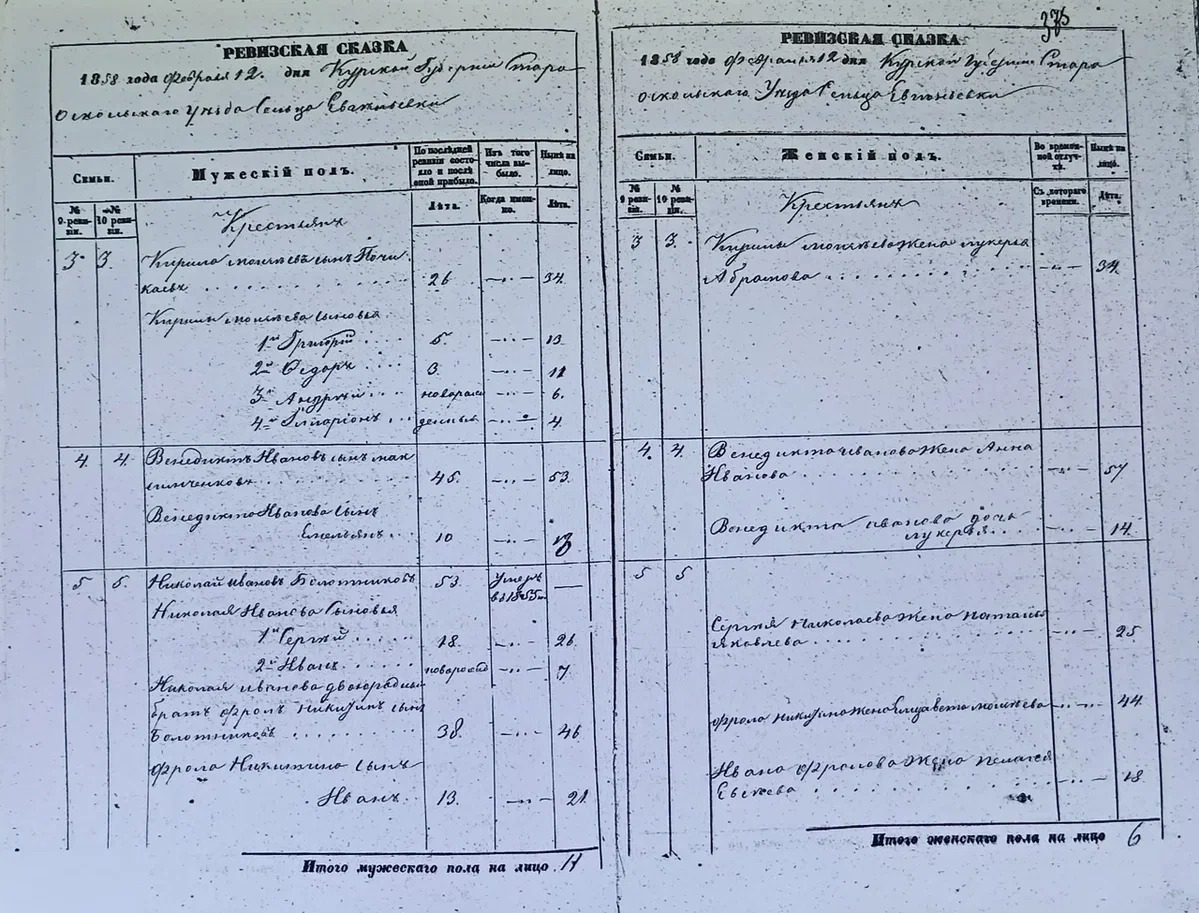 375
РЕВИЗСКАЯ СКАЗКА
1858 года февраля 12. дня Курской Губернiи Старо
оскольскаго Уезда Сельца
Семьи.
Мужескiй полъ.
По последней ревизiи состояло и после оной прибыло.
Изъ того числа выбыло.
Ныне на лицо.
№ 9 ревизiи.
№ 10 ревизiи.
Крестьянъ
Лѣта.
Когда именно.
Лѣта.
3 3 Кирила Моисѣевъ сынъ Почи
каевъ . . . . 26 —„— 34.
Кирилы Моисѣева сыновья
1й Григорiй . . . . 5. —„— 13
2й Федоръ . . . . 3. —„— 11
3й Андрѣй . . . . новорож —„— 6.
4й Илларiонъ . . . денные —„— 4.
4. 4. Венедиктъ Ивановъ сынъ Мак
симченковъ 45. —„— 53.
Венедикта Иванова сынъ
Емельянъ . . 10 —„— 18
5 5. Николай Ивановъ Болотниковъ 53. Умеръ въ 1855м —
Николая Иванова сыновья
1й Сергѣй . . . . . 18 —„— 26.
2й Иванъ . . . . . новорожд —„— 7
Николая Иванова двоюродный
братъ Фролъ Никитинъ сынъ
Болотниковъ . . . . 38. —„— 46
Фрола Никитина сынъ
Иванъ. 13. —„— 21.
Итого мужескаго пола на лицо 11
РЕВИЗСКАЯ СКАЗКА
1858 года февраля 12 дня Курской Губернiи Старо
оскольскаго Уезда Сельца
Семьи.
Женскiй полъ.
Во временной отлучкѣ.
Ныне на лицо.
№ 9 ревизiи.
№ 10 ревизiи.
Крестьянъ
Съ котораго времени.
Лѣта.
3 3. Кирилы Моисѣева жена Лукерья
Абрамова . . . . —„— 34.
4. 4. Венедикта Иванова жена Анна
Иванова . . . . —„— 57
Венедикта Иванова дочь
Лукерья . . —„— 14.
5 5 Сергѣя Николаева жена Наталья
Яковлева . . . . —„— 25
Фрола Никитина жена Елизавета Моисѣева —„— 44.
Ивана Фролова жена Пелагея
. . . . —„— 18.
Итого женскаго пола на лицо 6